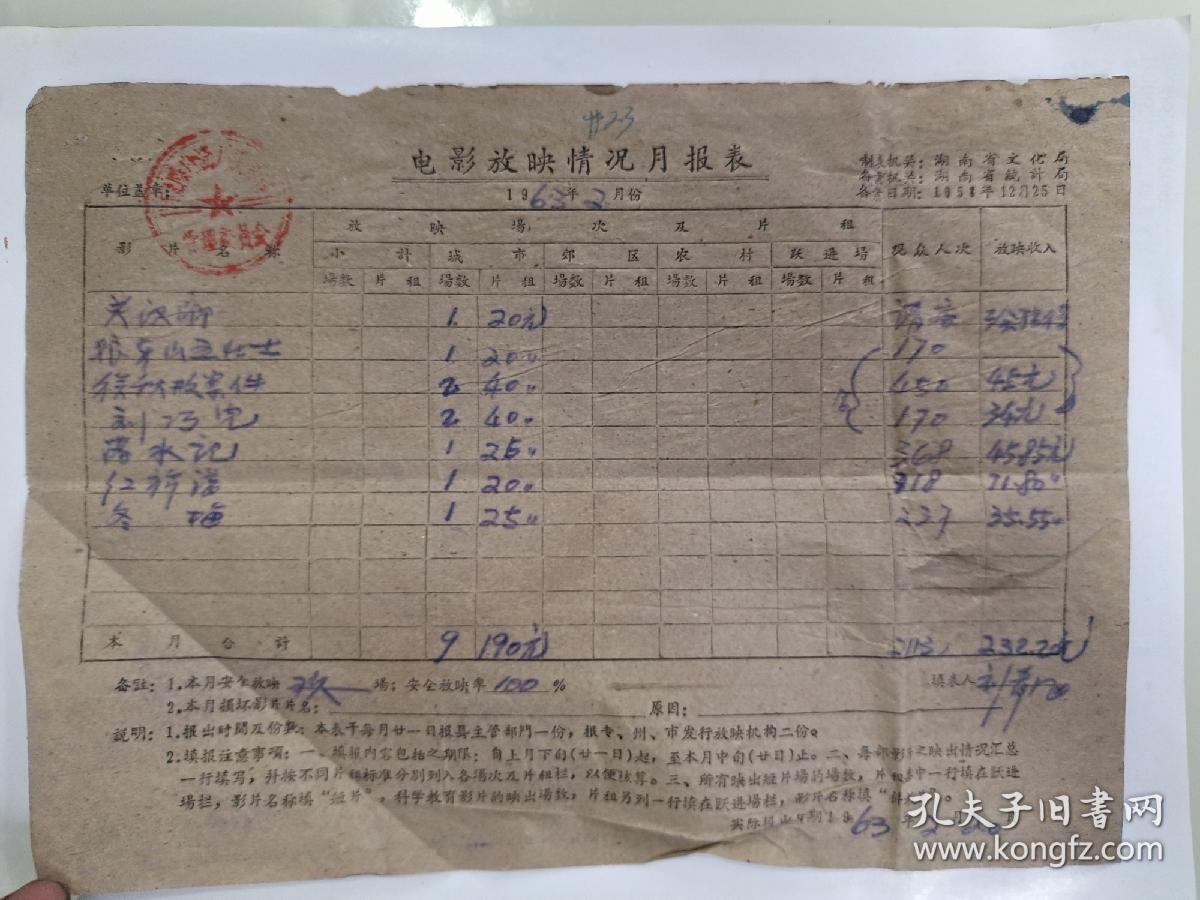 #23
电影放映情况月报表
制表机关：湖南省文化局
备案机关：湖南省統計局
备案日期：1958年12月25日
单位盖章：
管理委员会
1963年2月份
影片名称 放映場次及片租 观众人次 放映收入
小計 城市 郊区 农村 跃进場
場数 片租 場数 片租 場数 片租 場数 片租 場数 片租
关汉卿 1 20元
狼牙山五壮士 1 20〃 170
徐秋影案件 2 40〃 450 45元
刘巧儿 2 40〃 170 34元
落水记 1 25〃 368 45.85元
红河潢 1 20〃 718 71.80〃
冬梅 1 25〃 237 35.55〃
本月合計 9 190元 2113 232.20元
备註：1.本月安全放映 場；安全放映率100%
填表人
2.本月損坏影片片名： 原因：
説明：1.报出时間及份数：本表于每月廿一日报县主管部門一份，报专、州、市发行放映机构二份。
2.填报注意事項：一、填报内容包括之期限：自上月下旬（廿一日）起，至本月中旬（廿日）止。二、每部影片之映出情况汇总
一行填写，并按不同片租标准分别列入各場次及片租栏，以便核算。三、所有映出短片場的場数，片租集中一行填在跃进
場栏，影片名称填“短片”，科学教育影片的映出場数，片租另列一行填在跃进場栏，影片名称填“科教”。
实际报出日期1963年2月
孔夫子旧书网
www.kongfz.com